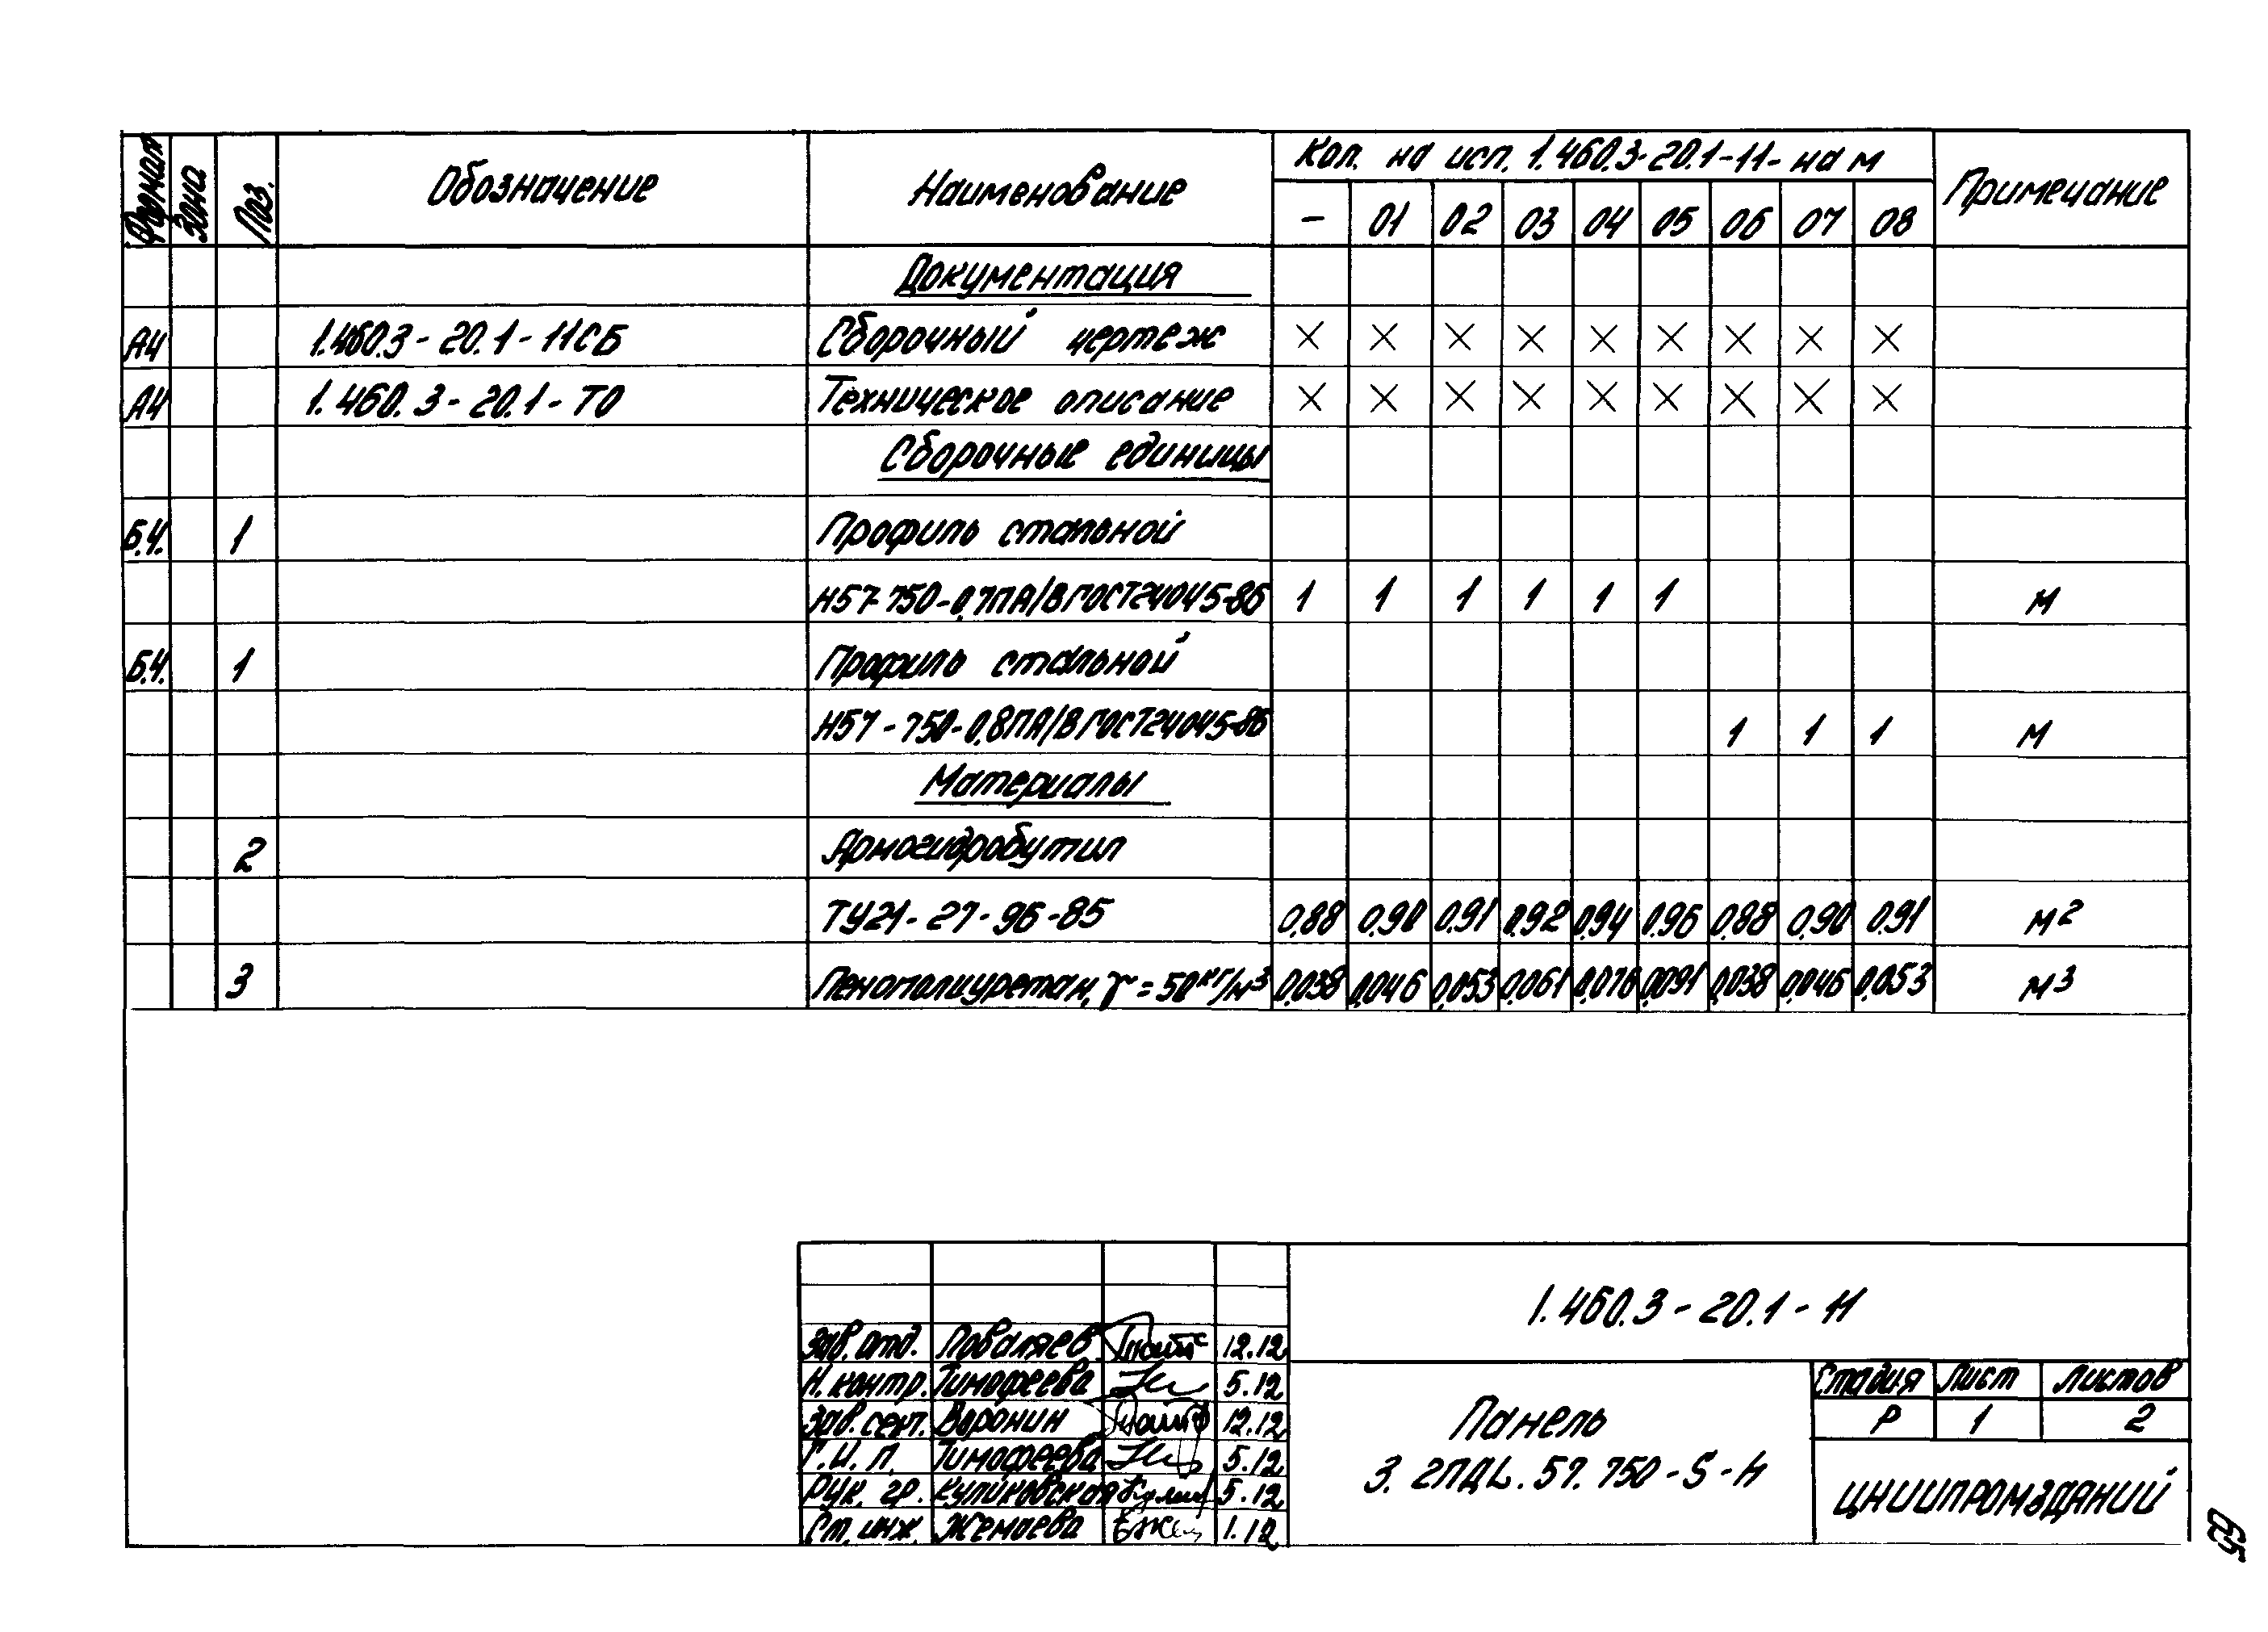 Формат Зона Поз. Обозначение Наименование Кол. на исп. 1.460.3-20.1-11- на м Примечание
– 01 02 03 04 05 06 07 08
Документация
А4 1.460.3-20.1-11СБ Сборочный чертеж × × × × × × × × ×
А4 1.460.3-20.1-ТО Техническое описание × × × × × × × × ×
Сборочные единицы
Б.Ч. 1 Профиль стальной
Н57-750-0,7ПА/В ГОСТ24045-86 1 1 1 1 1 1 м
Б.Ч. 1 Профиль стальной
Н57-750-0,8ПА/В ГОСТ24045-86 1 1 1 м
Материалы
2 Армогидробутил
ТУ21-27-96-85 0,88 0,90 0,91 0,92 0,94 0,96 0,88 0,90 0,91 м²
3 Пенополиуретан, γ=50кг/м³ 0,038 0,046 0,053 0,061 0,076 0,091 0,038 0,046 0,053 м³
1.460.3-20.1-11
Зав. отд. Поваляев 12.12
Н. контр. Тимофеева 5.12
Зав. сект. Воронин 12.12
Г.И.П. Тимофеева 5.12
Рук. гр. Куликовская 5.12
Ст. инж. Жемаева 1.12
Панель
3.2ПДL.57.750-S-Н
Стадия Лист Листов
Р 1 2
ЦНИИПРОМЗДАНИЙ
65